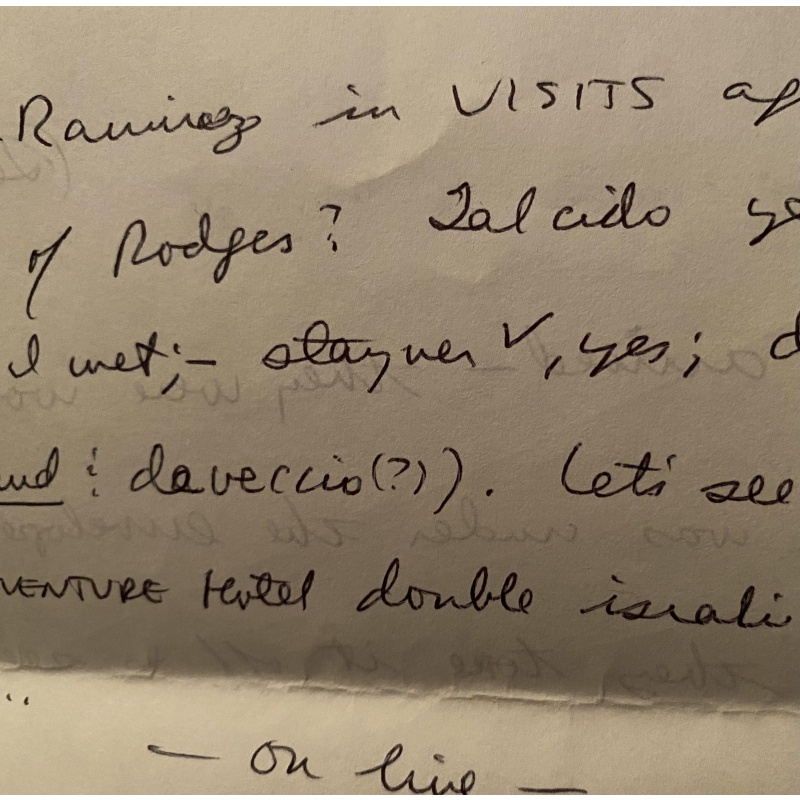 Ramirez in VISITS ap
of Rodges? Zalcido ye
I met;- stayner ✓, yes; d
und & daveccio(?)). Let's see
VENTURE Hotel double israli
..
— on line —